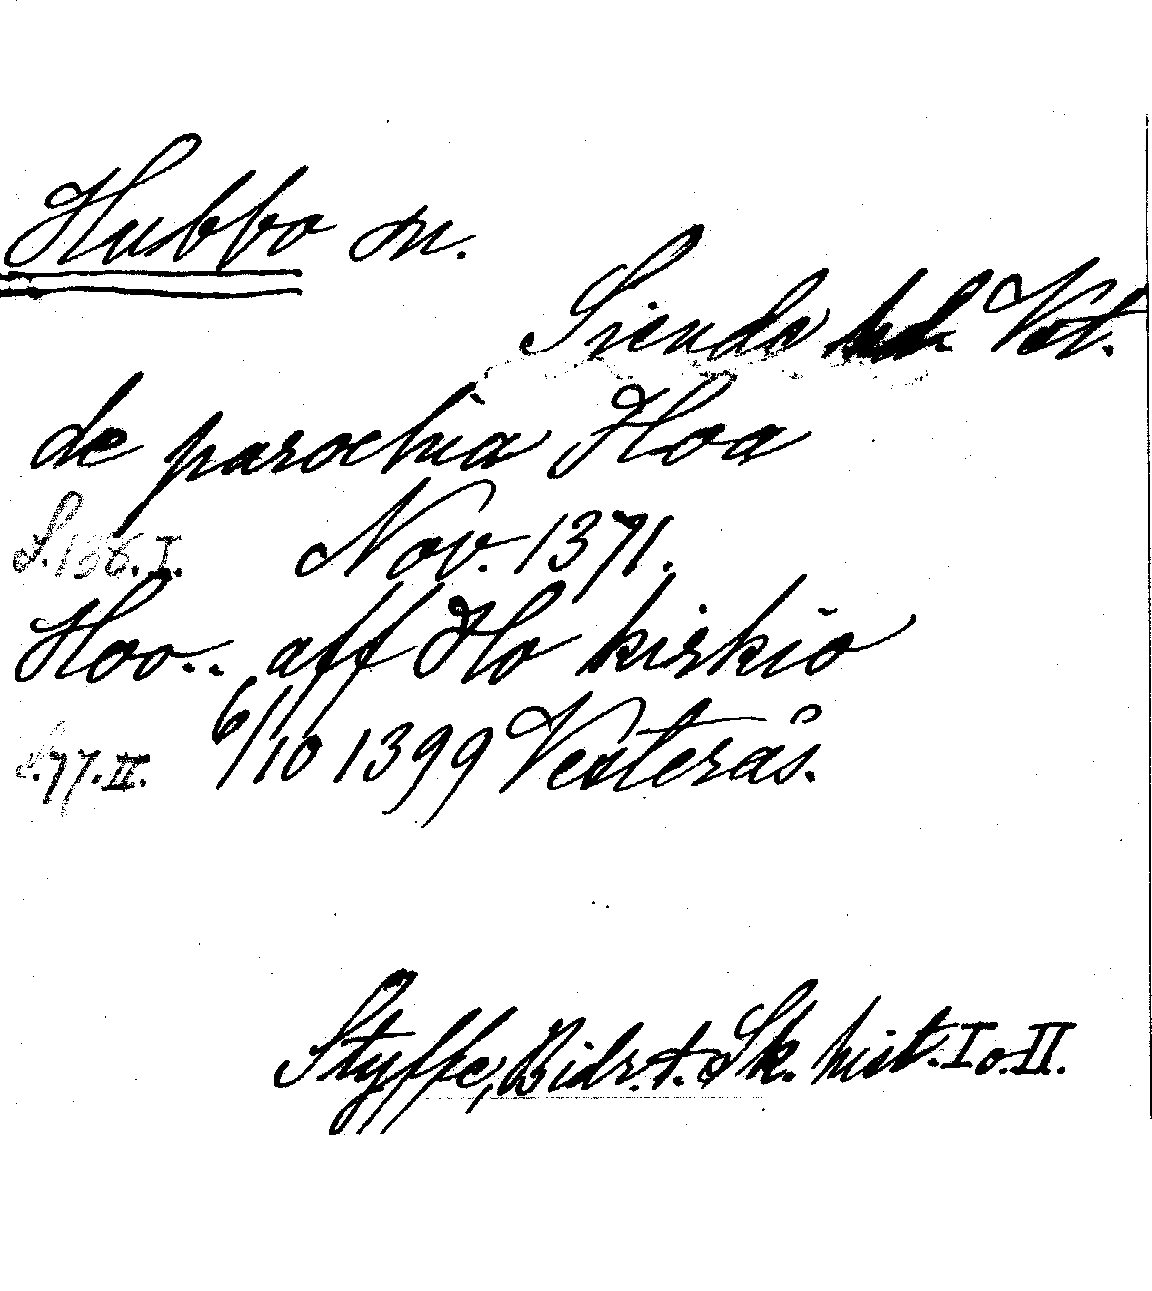 Hubbo sn.
Siende hd. Vstm.
de parochia Hoa
S. 136. I. Nov. 1371.
Hoo.. aff Ho kirkio
S. 77. II. 6/10 1399 Vesterås.
Styffe, Bidr. t. Sk. hist. I o. II.